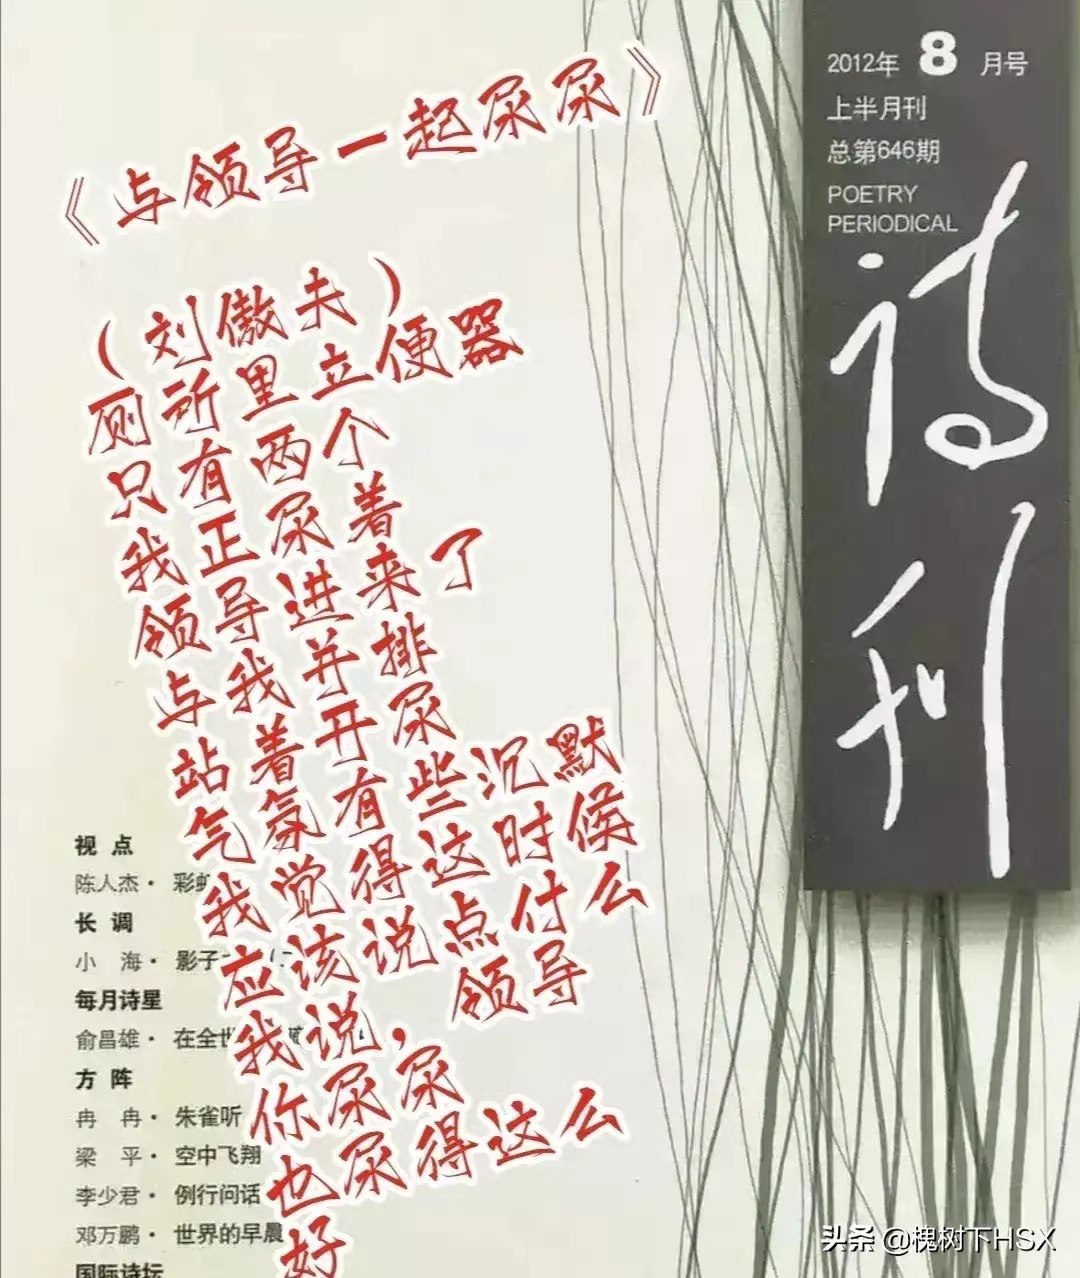 2012年 8 月号
上半月刊
总第646期
POETRY
PERIODICAL
诗刊
《与领导一起尿尿》
（刘傲夫）
厕所里立便器
只有两个
我正尿着
领导进来了
与我并排
站着开尿
气氛有些沉默
我觉得这时候
应该说点什么
我说，领导
你尿尿
也尿得这么
好
视 点
陈人杰· 彩虹
长 调
小 海· 影子
每月诗星
俞昌雄· 在全世
方 阵
冉 冉· 朱雀听
梁 平· 空中飞翔
李少君· 例行问话
邓万鹏· 世界的早晨
国际诗坛
头条 @槐树下HSX